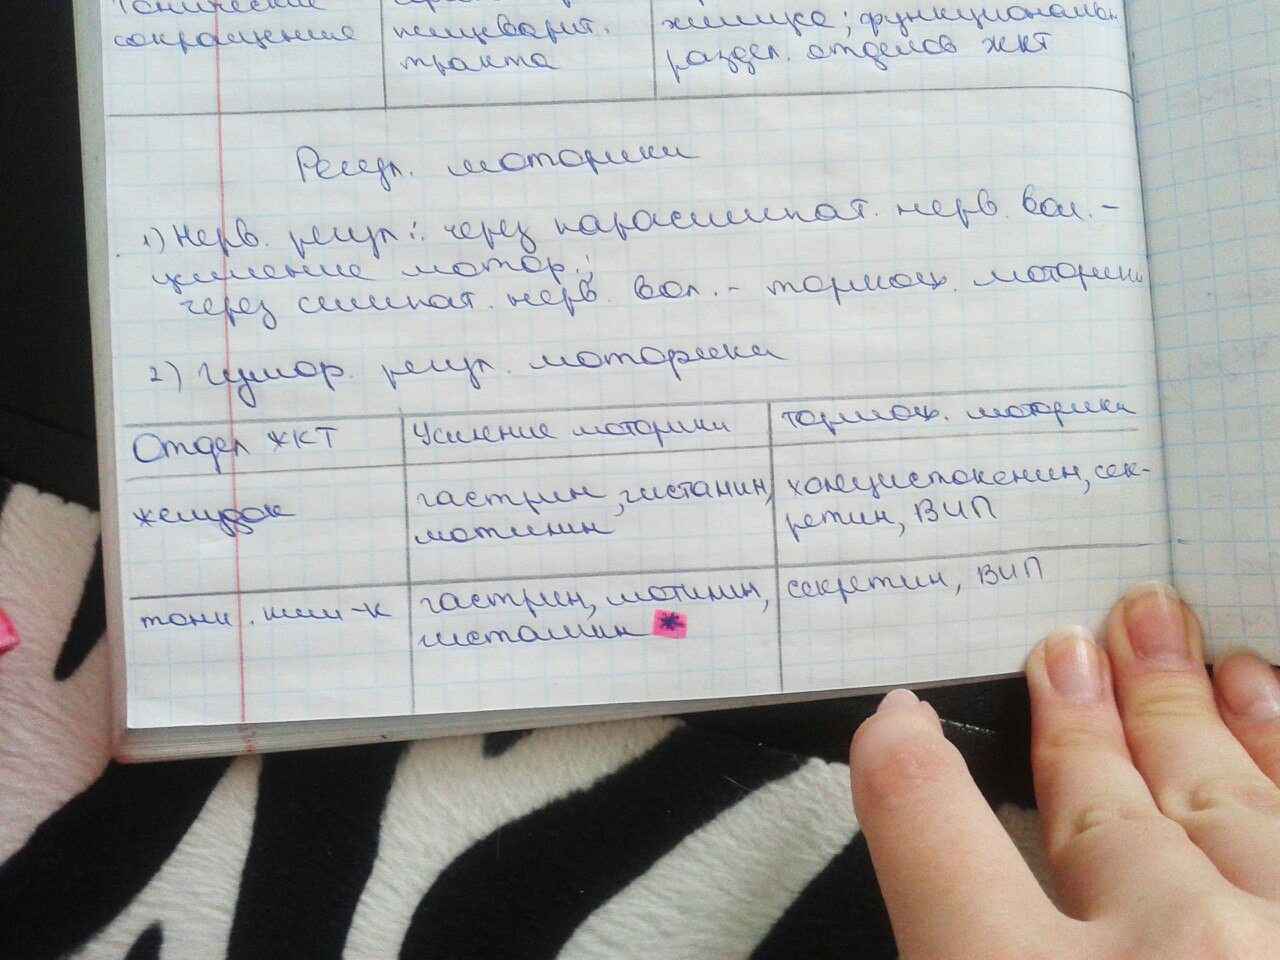 тонические
сокращение
пищеварит.
тракта
химуса; функциональн.
раздел. отделов жкт
Регул. моторики
1) Нерв. регул.: через парасимпат. нерв. вол. –
усиление мотор.;
через симпат. нерв. вол. – тормож. моторики
2) Гумор. регул. моторики
Отдел ЖКТ
Усиление моторики
тормож. моторики
желудок
гастрин, гистамин,
мотилин
холецистокенин, сек-
ретин, ВИП
тонк. киш-к
гастрин, мотилин,
гистамин *
секретин, ВИП